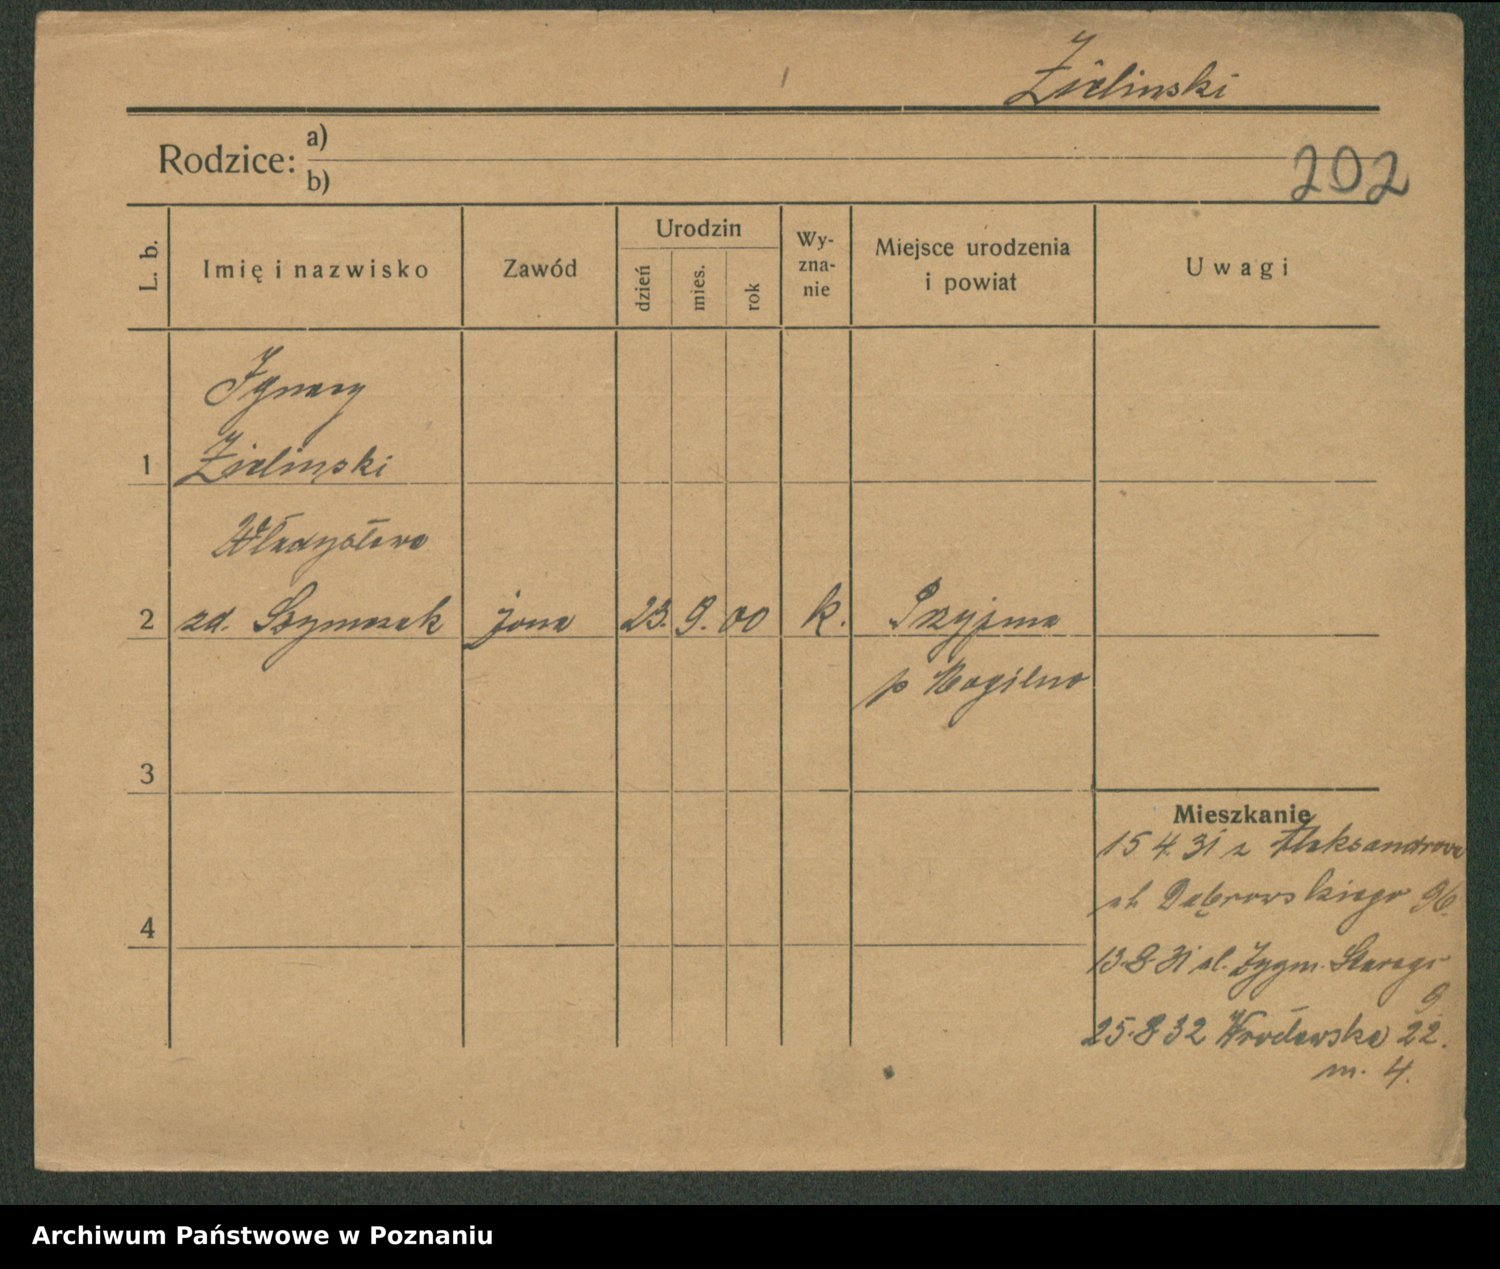 Zielinski
Rodzice: a)
b)
202
L. b.
Imię i nazwisko
Zawód
Urodzin
dzień
mies.
rok
Wy-
zna-
nie
Miejsce urodzenia
i powiat
Uwagi
Ignacy
1 Zielinski
Władysława
2 zd. Szymczak żona 23. 9. 00 k. Przyjma
p Mogilno
3
Mieszkanie
15 4. 31 z Aleksandrowa
ul. Dąbrowskiego 96.
4
13.8.31 ul. Zygm. Starego
9
25.8.32 Wrocławska 22.
m. 4.
Archiwum Państwowe w Poznaniu